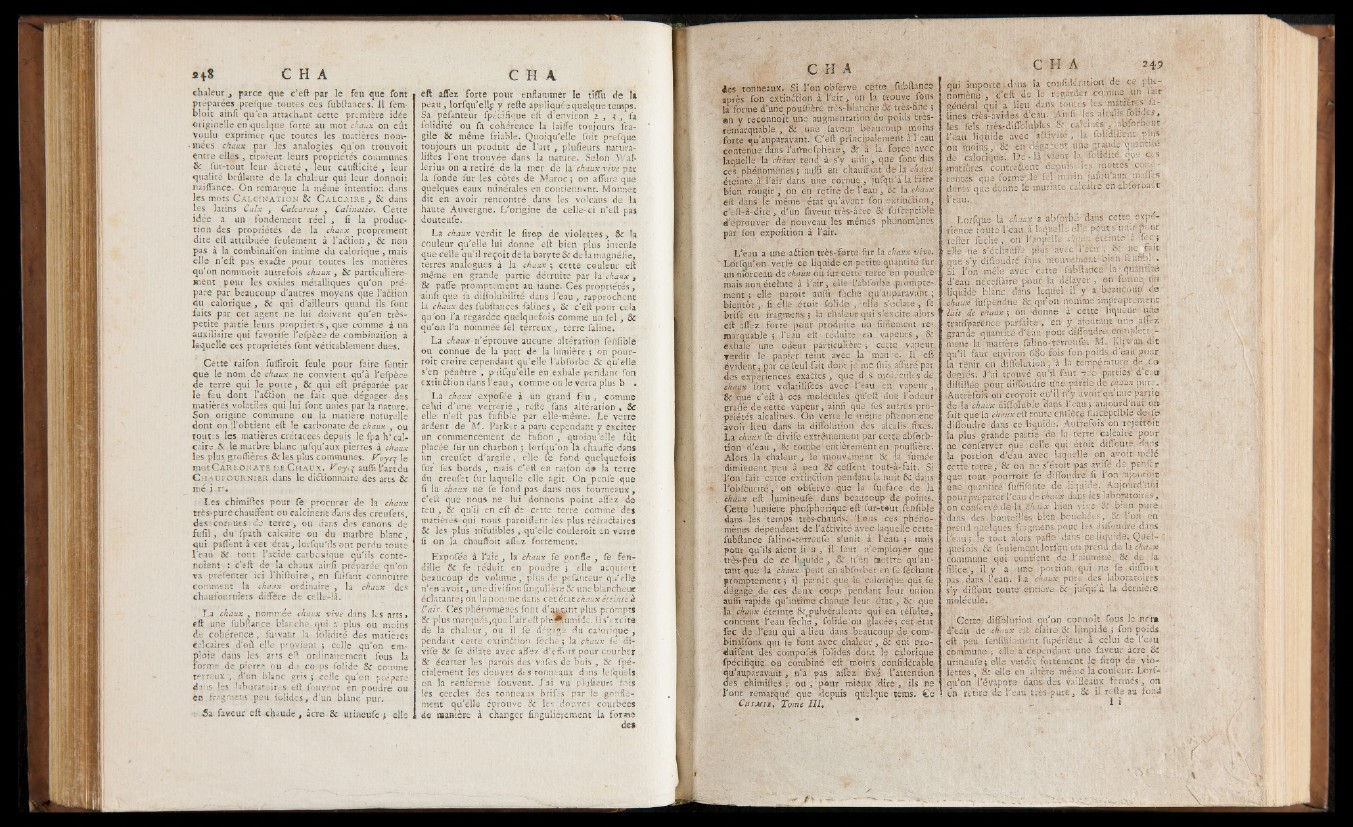 248 C H A
chaleur, parce que c'est par le feu que font
préparées presque toutes ces substances. Il sem-
bloit ainsi qu'en attachant cette première idée
originelle en quelque sorte au mot chaux on eût
voulu exprimer que toutes les matières nom-
mées chaux par les analogies qu'on trouvoit
entre elles, tiroient leurs propriétés communes
& sur-tout leur âcreté, leur causticité, leur
qualité brûlante de la chaleur qui leur donnoit
naissance. On remarque la même intention dans
les mots CALCINATION & CALCAIRE, & dans
les latins Calx, Calcareus, Calinatio. Cette
idée a un fondement réel, si la produc-
tion des propriétés de la chaux proprement
dite est attribuée seulement à l'action, & non
pas à la combinaison intime du calorique, mais
elle n'est pas exacte pour toutes les matières
qu'on nommoit autrefois chaux, & particulière-
ment pour les oxides métalliques qu'on pré-
pare par beaucoup d'autres moyens que l'action
du calorique, & qui d'ailleurs quand ils sont
faits par cet agent ne lui doivent qu'en très-
petite partie leurs propriétés, que comme à un
auxiliaire qui favorise l'espèce de combinaison à
laquelle ces propriétés sont véritablement dues.
Cette raison suffiroit seule pour faire sentir
que le nom de chaux ne convient qu'à l'espèce
de terre qui le porte, & qui est préparée par
le feu dont l'action ne fait que dégager des
matières volatiles qui lui sont unies par la nature.
Son origine commune ou la matière naturelle
dont on l'obtient est le carbonate de chaux, ou
toutes les matières crétacées depuis le spath cal-
caire & le marbre blanc jusqu'aux pierres à chaux
les plus grossières & les plus communes. Voyez le
mot CARBONATE DE CHAUX. Voyez aussi l'art du
CHAUFOURNIER dans le dictionnaire des arts &
mé
Les chimistes pour se procurer de la chaux
très-pure chauffent ou calcinent dans des creusets,
des cornues de terre, ou dans des canons de
fusil, du spath calcaire ou du marbre blanc,
qui passent à cet état, lorsqu'ils ont perdu toute
l'eau & tout l'acide carbonique qu'ils conte-
noient : c'est de la chaux ainsi préparée qu'on
va présenter ici l'histoire, en faisant connoître
comment la chaux ordinaire, la chaux des
chaufourniers diffère de celle-là.
La chaux, nommée chaux vive dans les arts,
est une substance blanche qui a plus ou moins
de cohérence, suivant la solidité des matières
calcaires d'où elle provient ; celle qu'on em-
ploie dans les arts est ordinairement sous la
forme de pierre ou de corps solide & comme
terreux, d'un blanc gris ; celle qu'on prépare
dans les laboratoires est souvent en poudre ou
en fragmens peu solides, d'un blanc pur.
Sa saveur est chaude, âcre & urineuse ; elle
C H A
est assez forte pour enflammer le tissu de la
peau, lorsqu'elle y reste appliquée quelque temps.
Sa pesanteur spécifique est d'environ 2, 3, sa
solidité ou sa cohérence la laisse toujours fra-
gile & même friable. Quoiqu'elle soit presque
toujours un produit de l'art, plusieurs natura-
listes l'ont trouvée dans la nature. Selon Wal-
lerius on a retiré de la mer de la chaux vive par
la sonde sur les côtes de Maroc ; on assure que
quelques eaux minérales en contiennent. Monnet
dit en avoir rencontré dans les volcans de la
haute Auvergne. L'origine de celle-ci n'est pas
douteuse.
La chaux verdit le sirop de violettes, & la
couleur qu'elle lui donne est bien plus intense
que celle qu'il reçoit de la baryte & de la magnésie,
terres analogues à la chaux ; cette couleur est
même en grande partie détruite par la chaux,
& passe promptement au jaune. Ces propriétés,
ainsi que sa dissolubilité dans l'eau, rapprochent
la chaux des substances salines, & c'est pour cela
qu'on l'a regardée quelquefois comme un sel, &
qu'on l'a nommée sel terreux, terre saline.
La chaux n'éprouve aucune altération sensible
ou connue de la part de la lumière ; on pour-
roit croire cependant qu'elle l'absorbe & qu'elle
s'en pénètre, puisqu'elle en exhale pendant son
extinction dans l'eau, comme on le verra plus b .
La chaux exposée à un grand feu, comme
celui d'une verrerie, reste sans altération, &
elle n'est pas fusible par elle-même. Le verre
ardent de M. Parker a paru cependant y exciter
un commencement de fusion, quoiqu'elle fût
placée sur un charbon ; lorsqu'on la chauffe dans
un creuset d'argile, elle se fond quelquefois
sur ses bords, mais c'est en raison de la terre
du creuset sur laquelle elle agit. On pense que
si la chaux ne se fond pas dans nos fourneaux,
c'est que nous ne lui donnons point assez de
feu, & qu'il en est de cette terre comme des
matières qui nous paroissent les plus réfractaires
& les plus infusibles, qu'elle couleroit en verre
si on la chauffoit assez fortement.
Exposée à l'air, la chaux se gonfle, se fen-
dille & se réduit en poudre ; elle acquiert
beaucoup de volume, plus de pesanteur qu'elle
n'en avoit, une division singulière & une blancheur
éclatante ; on la nomme dans cet état chaux éteinte à
l'air. Ces phénomènes sont d'autant plus prompts
& plus marqués, que l'air est plus humide. Il s'excite
de la chaleur, ou il se dégage du calorique,
pendant cette extinction sèche ; la chaux se di-
vise & se dilate avec assez d'effort pour courber
& écarter les parois des vases de bois, & spé-
cialement les douves des tonneaux dans lesquels
on la renferme souvent. J'ai vu plusieurs fois
les cercles des tonneaux brisés par le gonfle-
ment qu'elle éprouve & les douves courbées
de manière à changer singulièrement la forme
des
C H A
des tonneaux. Si l'on observe cette substance
après son extinction à l'air, on la trouve sous
la forme d'une poussière très-blanche & très-fine ;
on y reconnoît une augmentation du poids très-
remarquable, & une saveur beaucoup moins
forte qu'auparavant. C'est principalement à l'eau
contenue dans l'atmosphère, & à la force avec
laquelle la chaux tend à s'y unir, que sont dus
ces phénomènes ; aussi en chauffant de la chaux
éteinte à l'air dans une cornue, jusqu'à la faire
bien rougir, on en retire de l'eau, & la chaux
est dans le même état qu'avant son extinction,
c'est-à-dire, d'un saveur très-âcre & susceptible
d'éprouver de nouveau les mêmes phénomènes
par son exposition à l'air.
L'eau a une action très-forte sur la chaux vive.
Lorsqu'on verse ce liquide en petite quantité sur
un morceau de chaux ou sur cette terre en poudre
mais non éteinte à l'air, elle l'absorbe prompte-
ment ; elle paroît aussi sèche qu'auparavant ;
bientôt, si elle étoit solide, elle s'éclate, se
brise en fragmens ; la chaleur qui s'excite alors
est assez forte pour produire un sifflement re-
marquable ; l'eau est réduite en vapeurs, &
exhale une odeur particulière ; cette vapeur
verdit le papier teint avec la mauve. Il est
évident, par ce seul fait dont je me suis assuré par
des expériences exactes, que des molécules de
chaux sont volatilisées avec l'eau en vapeur,
& que c'est à ces molécules qu'est due l'odeur
grasse de cette vapeur, ainsi que ses autres pro-
priétés alcalines. On verra le même phénomène
avoir lieu dans la dissolution des alcalis fixes.
La chaux se divise extrêmement par cette absorb-
tion d'eau, & tombe entièrement en poussière.
Alors la chaleur, le mouvement & la fumée
diminuent peu à peu & cessent tout-à-fait. Si
l'on fait cette extinction pendant la nuit & dans
l'obscurité, on observe que la surface de la
chaux est lumineuse dans beaucoup de points.
Cette lumière phosphorique est sur-tout sensible
dans les temps très-chauds. Tous ces phéno-
mènes dépendent de l'activité avec laquelle cette
substance salino-terreuse s'unit à l'eau ; mais
pour qu'ils aient lieu, il faut n'employer que
très-peu de ce liquide, & n'en mettre qu'au-
tant que la chaux peut en absorber en se séchant
promptement ; il paroît que le calorique qui se
dégage de ces deux corps pendant leur union
aussi rapide qu'intime change leur état, & que
la chaux éteinte & pulvérulente qui en résulte,
contient l'eau sèche, solide ou glacée ; cet état
sec de l'eau qui a lieu dans beaucoup de com-
binaisons qui se font avec chaleur, & qui pro-
duisent des composés solides dont le calorique
spécifique ou combiné est moins considérable
qu'auparavant, n'a pas assez fixé l'attention
des chimistes ; ou, pour mieux dire, ils ne
l'ont remarqué que depuis quelque tems. Ce
CHIMIE. Tome III.
C H A 249
qui importe dans la considération de ce phé-
nomène, c'est de le regarder comme un fait
général qui a lieu dans toutes les matières sa-
lines très-avides d'eau. Ainsi les alcalis solides,
les sels très-dissolubles & calcinés, absorbent
l'eau liquide avec activité, la solidifient plus
ou moins, & en dégagent une grande quantité
de calorique. De-là vient la solidité que ces
matières contractent depuis les mottes cohé-
rentes que forme le sel marin jusqu'aux masses
dures que donne le muriate calcaire en absorbant
l'eau.
Lorsque la chaux a absorbé dans cette expé-
rience toute l'eau à laquelle elle peut s'unir pour
rester sèche, on l'appelle chaux éteinte à sec ;
elle ne s'échauffe plus avec l'eau ; & ne fait
que s'y dissoudre sans mouvement bien sensible.
Si l'on mêle avec cette substance la quantité
d'eau nécessaire pour la délayer, on forme un
liquide blanc dans lequel il y a beaucoup de
chaux suspendue & qu'on nomme improprement
lait de chaux ; on donne à cette liqueur une
transparence parfaite, en y ajoutant une assez
grande quantité d'eau pour dissoudre complette-
ment la matière salino-terreuse. M. Kirwan dit
qu'il faut environ 680 fois son poids d'eau pour
la tenir en dissolution, à la température de 60
degrés. J'ai trouvé qu'il faut parties d'eau
distillée pour dissoudre une partie de chaux pure.
Autrefois on croyoit qu'il n'y avoit qu'une partie
de la chaux dissoluble dans l'eau ; aujourd'hui on
sait que la chaux est toute entière susceptible de se
dissoudre dans ce liquide. Autrefois on rejettoit
la plus grande partie de la terre calcaire pour
ne conserver que celle qui étoit dissoute dans
la portion d'eau avec laquelle on avoit mêlé
cette terre, & on ne s'étoit pas avisé de penser
que tout pourroit se dissoudre si l'on ajoutoit
une quantité suffisante de liquide. Aujourd'hui
pour préparer l'eau de chaux dans les laboratoires,
on conserve de la chaux bien vive & bien pure
dans des bouteilles bien bouchées, & l'on en
prend quelques fragmens pour les dissoudre dans
l'eau ; le tout alors passe dans ce liquide. Quel-
quefois, & seulement lorsqu'on prend de la chaux
commune qui contient de l'alumine & de la
silice, il y a une portion qui ne se dissout
pas dans l'eau. La chaux pure des laboratoires
s'y dissout toute entière & jusqu'à la dernière
molécule.
Cette dissolution qu'on connoît sous le nom
d'eau de chaux est claire & limpide ; son poids
est peu sensiblement supérieur à celui de l'eau
commune ; elle a cependant une saveur âcre &
urineuse ; elle verdit fortement le sirop de vio-
lettes, & elle en altère même la couleur. Lors-
qu'on l'évapore dans des vaisseaux fermés, on
en retire de l'eau très-pure, & il reste au fond
I i